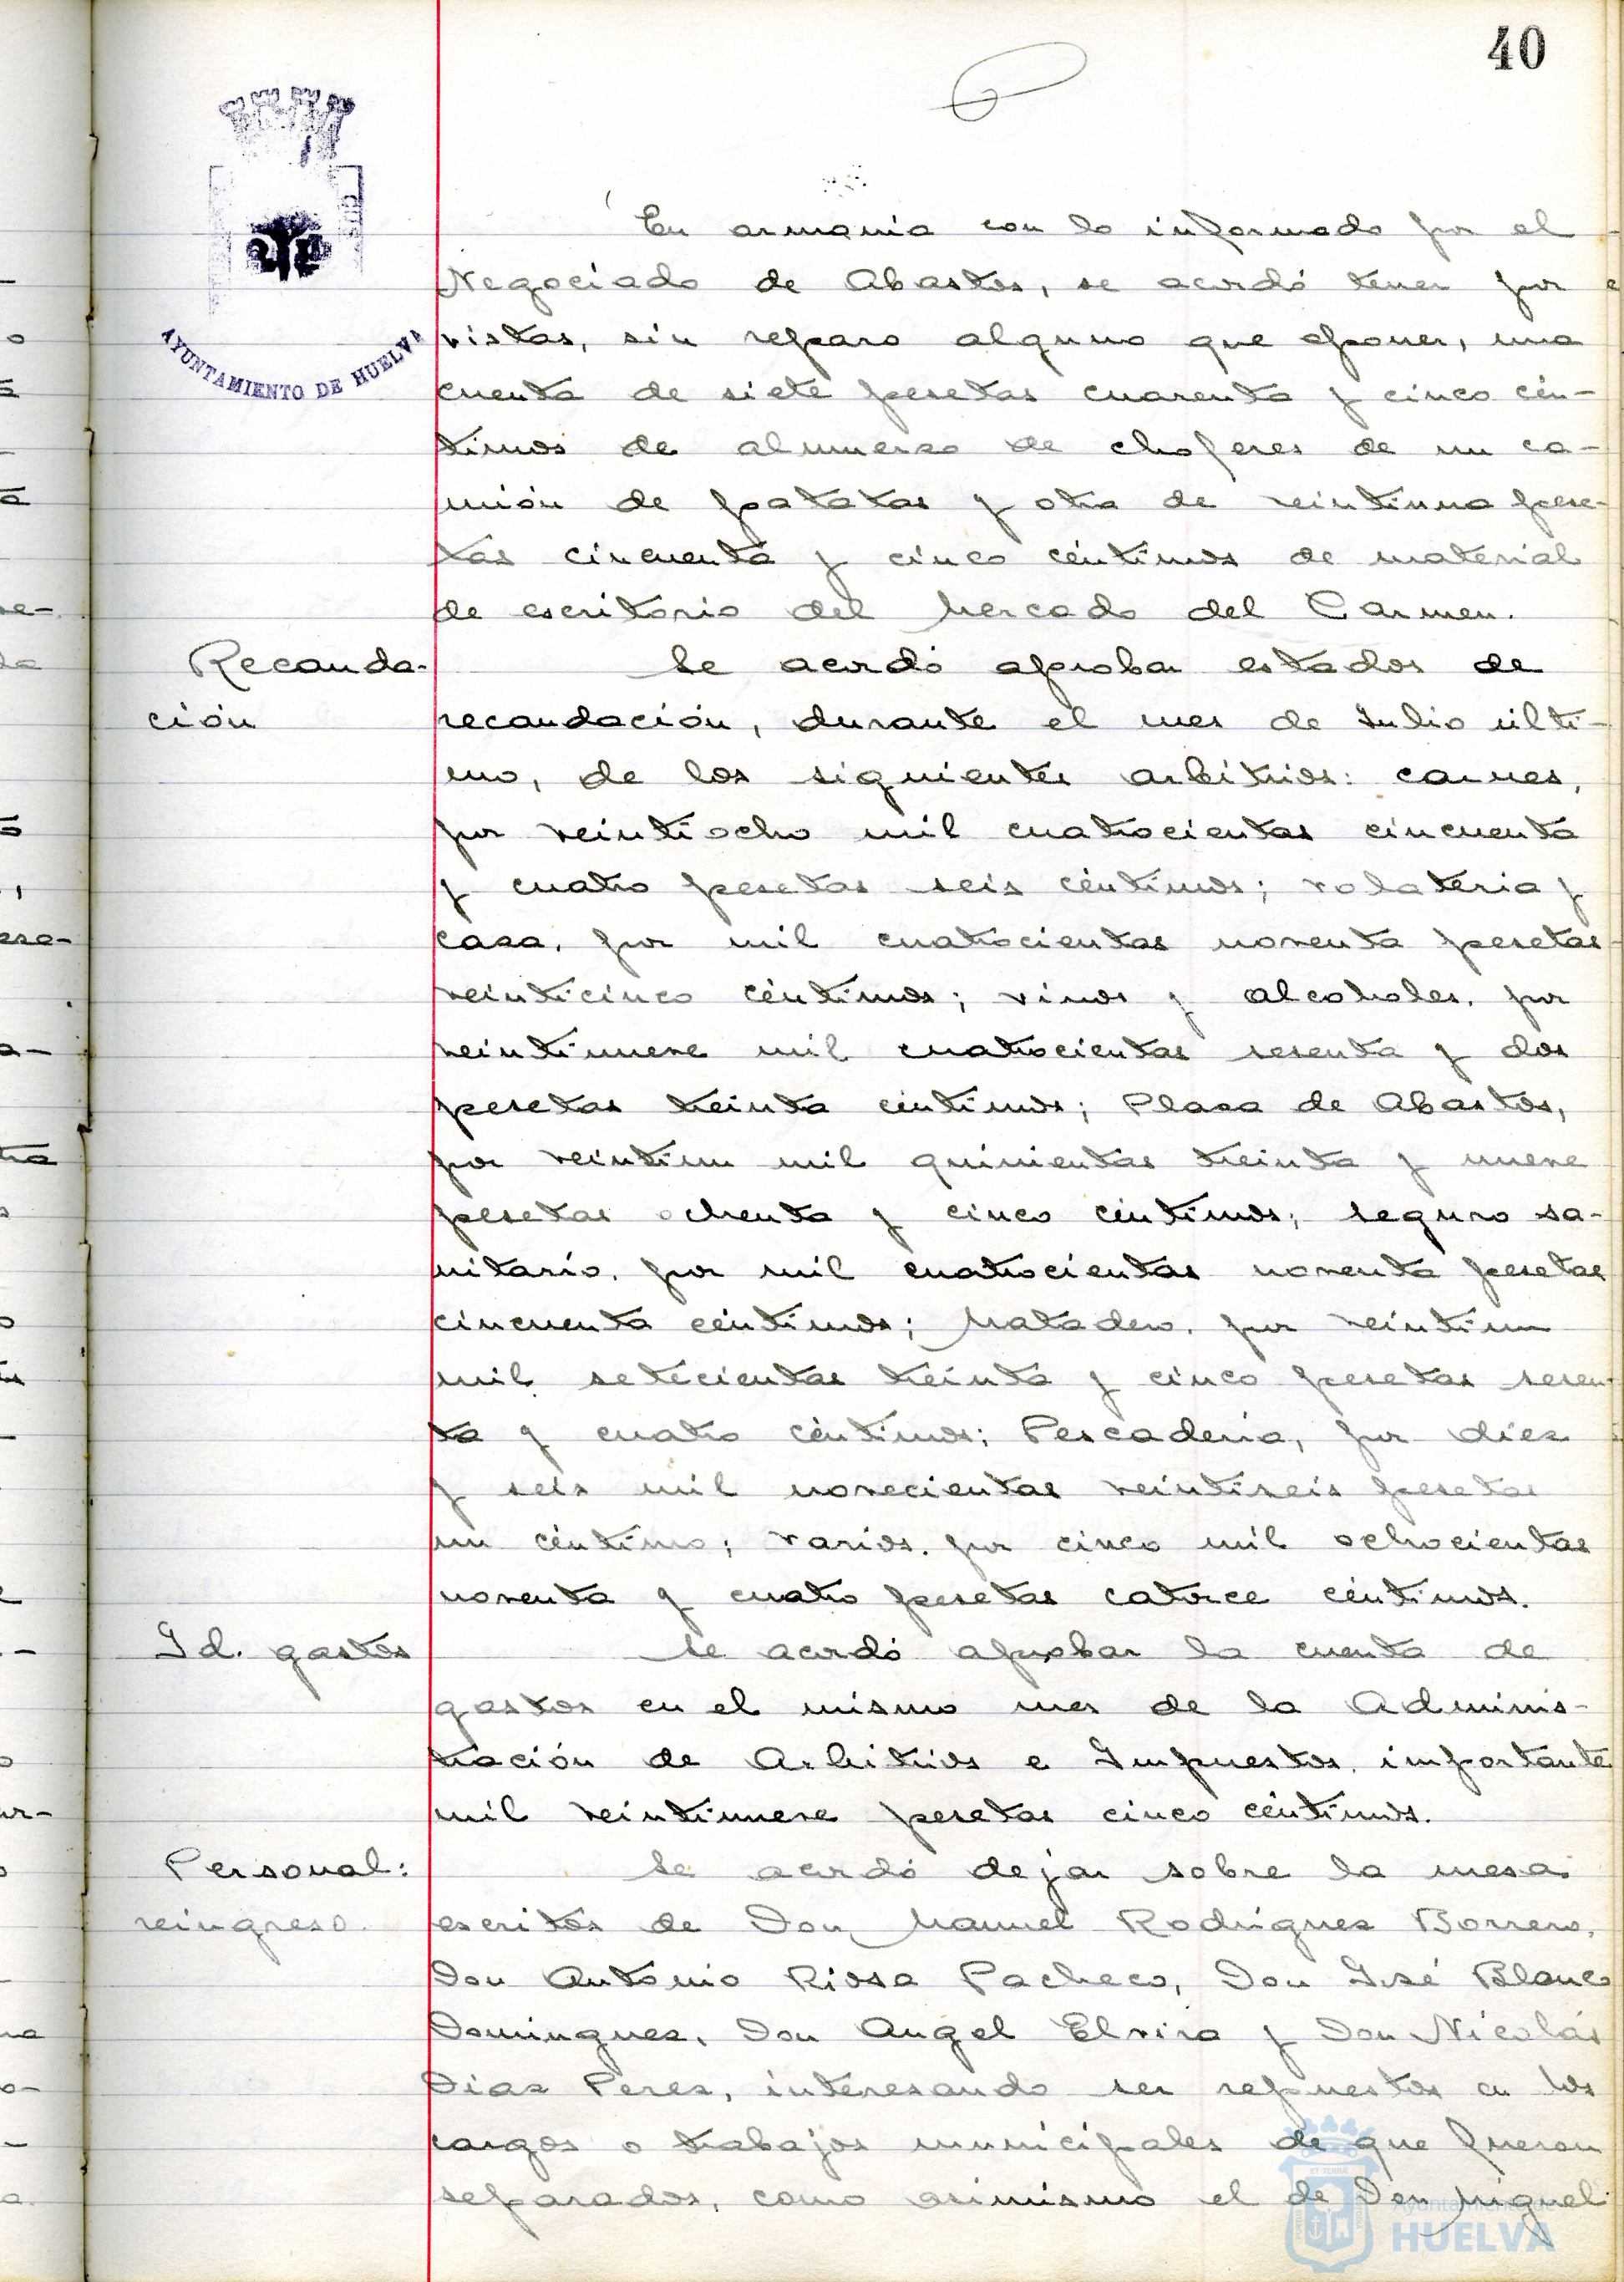 40
AYUNTAMIENTO DE HUELVA
En armonia con lo informado por el
Negociado de Abastos, se acordó tener por
vistas, sin reparo alguno que oponer, una
cuenta de siete pesetas cuarenta y cinco cén-
timos de almuerzo de choferes de un ca-
mión de patatas y otra de veintiuna pese-
tas cincuenta y cinco céntimos de material
de escritorio del Mercado del Carmen.
Recauda-
ción
Se acordó aprobar estados de
recaudación, durante el mes de Julio últi-
mo, de los siguientes arbitrios: carnes,
por veintiocho mil cuatrocientas cincuenta
y cuatro pesetas seis céntimos; volateria y
caza, por mil cuatrocientas noventa pesetas
veinticinco céntimos; vinos y alcoholes, por
veintinueve mil cuatrocientas sesenta y dos
pesetas treinta céntimos; Plaza de Abastos,
por veintiun mil quinientas treinta y nueve
pesetas ochenta y cinco céntimos; seguro sa-
nitario, por mil cuatrocientas noventa pesetas
cincuenta céntimos; Matadero, por veintiun
mil setecientas treinta y cinco pesetas sesen-
ta y cuatro céntimos; Pescaderia, por diez
y seis mil novecientas veintiseis pesetas
un céntimo; varios, por cinco mil ochocientas
noventa y cuatro pesetas catorce céntimos.
Id. gastos
Se acordó aprobar la cuenta de
gastos en el mismo mes de la Adminis-
tración de Arbitrios e Impuestos, importante
mil veintinueve pesetas cinco céntimos.
Personal:
reingreso.
Se acordó dejar sobre la mesa
escritos de Don Manuel Rodriguez Borrero,
Don Antonio Riosa Pacheco, Don José Blanco
Dominguez, Don Angel Elvira y Don Nicolás
Diaz Perez, interesando ser repuestos en los
cargos o trabajos municipales de que fueron
separados, como asimismo el de Don Miguel
Ayuntamiento de
HUELVA